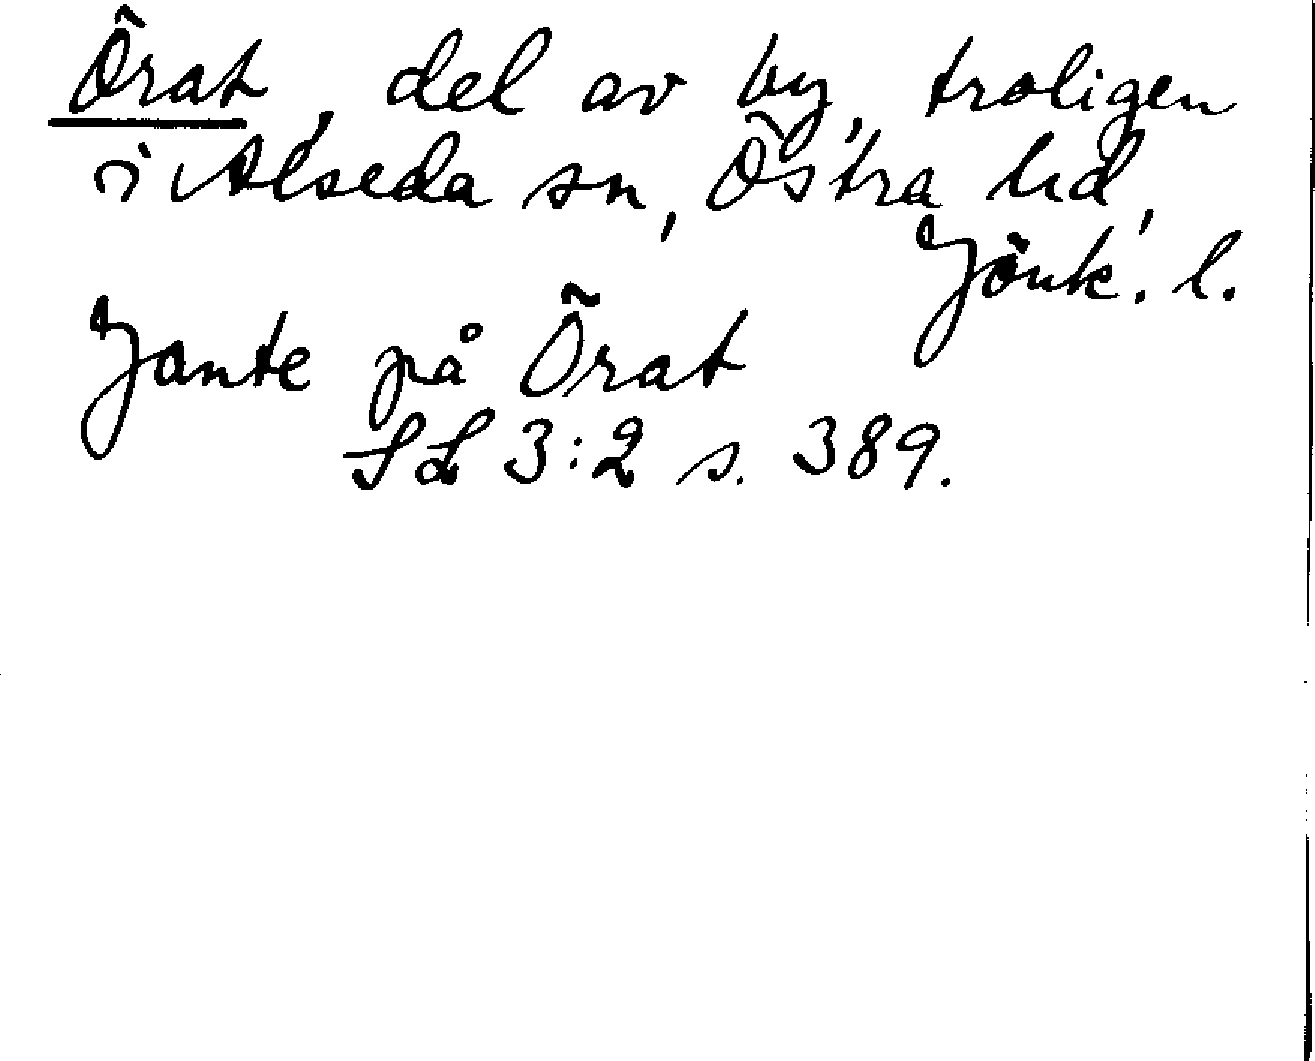 Örat, del av by, troligen
i Alseda sn, Östra hd,
Jönk. l.
Jante på Örat
Sd 3:2 s. 389.